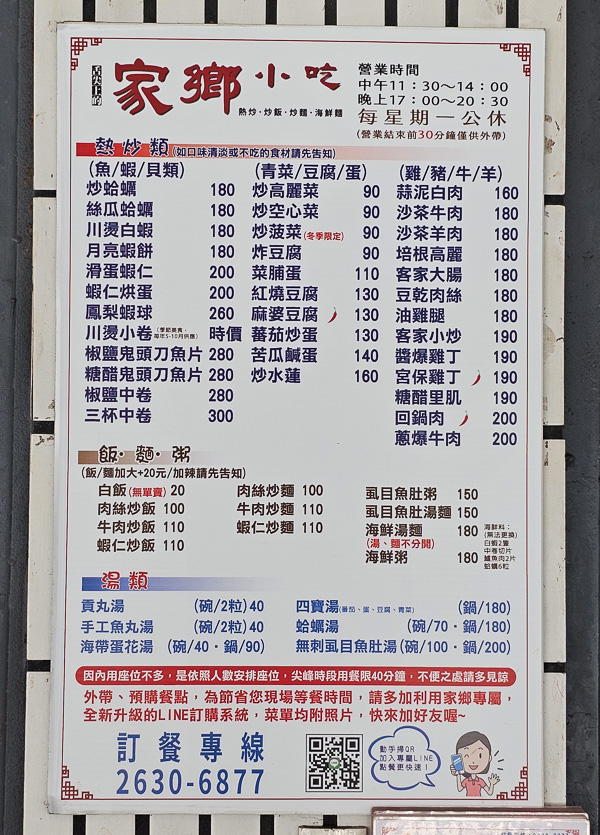 舌尖上的
家鄉小吃
熱炒‧炒飯‧炒麵‧海鮮麵
營業時間
中午11：30～14：00
晚上17：00～20：30
每星期一公休
(營業結束前30分鐘僅供外帶)
熱炒類(如口味清淡或不吃的食材請先告知)
(魚/蝦/貝類)
炒蛤蠣 180
絲瓜蛤蠣 180
川燙白蝦 180
月亮蝦餅 180
滑蛋蝦仁 200
蝦仁烘蛋 200
鳳梨蝦球 260
川燙小卷(季節美食，每年5-10月供應) 時價
椒鹽鬼頭刀魚片 280
糖醋鬼頭刀魚片 280
椒鹽中卷 280
三杯中卷 300
(青菜/豆腐/蛋)
炒高麗菜 90
炒空心菜 90
炒菠菜(冬季限定) 90
炸豆腐 90
菜脯蛋 110
紅燒豆腐 130
麻婆豆腐 130
蕃茄炒蛋 130
苦瓜鹹蛋 140
炒水蓮 160
(雞/豬/牛/羊)
蒜泥白肉 160
沙茶牛肉 180
沙茶羊肉 180
培根高麗 180
客家大腸 180
豆乾肉絲 180
油雞腿 180
客家小炒 190
醬爆雞丁 190
宮保雞丁 190
糖醋里肌 190
回鍋肉 200
蔥爆牛肉 200
飯‧麵‧粥
(飯/麵加大+20元/加辣請先告知)
白飯(無單賣) 20
肉絲炒飯 100
牛肉炒飯 110
蝦仁炒飯 110
肉絲炒麵 100
牛肉炒麵 110
蝦仁炒麵 110
虱目魚肚粥 150
虱目魚肚湯麵 150
海鮮湯麵 180
(湯、麵不分開)
海鮮粥 180
海鮮料：
(無法更換)
白蝦2隻
中卷切片
鱸魚肉2片
蛤蠣6粒
湯類
貢丸湯 (碗/2粒)40
手工魚丸湯 (碗/2粒)40
海帶蛋花湯 (碗/40‧鍋/90)
四寶湯(番茄、蛋、豆腐、青菜) (鍋/180)
蛤蠣湯 (碗/70‧鍋/180)
無刺虱目魚肚湯(碗/100‧鍋/200)
因內用座位不多，是依照人數安排座位，尖峰時段用餐限40分鐘，不便之處請多見諒
外帶、預購餐點，為節省您現場等餐時間，請多加利用家鄉專屬，
全新升級的LINE訂購系統，菜單均附照片，快來加好友喔~
訂餐專線
2630-6877
動手掃QR
加入專屬LINE
點餐更快速！